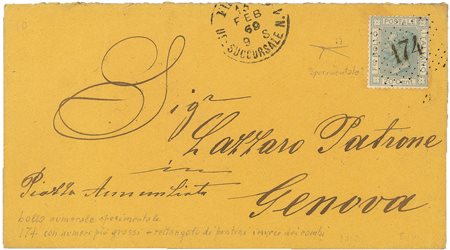 FEB
69
9 S
SUCCURSALE N. 4
POSTALE
174
"sperimentale"
Sigr
Lazzaro Patrone
in
Piazza Annunziata
Genova
bollo numerale sperimentale
174 con numeri più grossi e rettangolo di puntini invece dei rombi